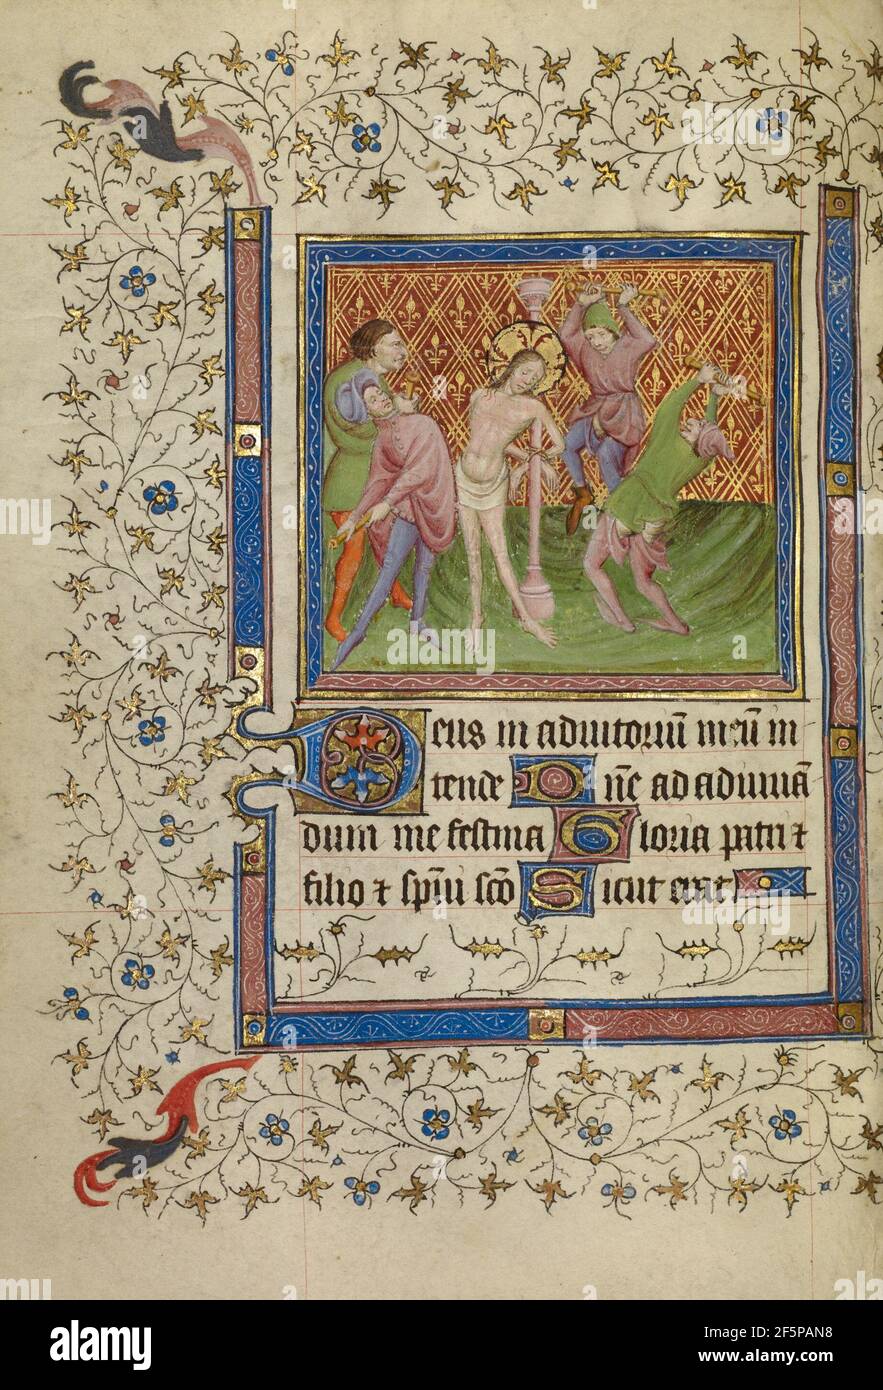 Deus in adiutoriū meū in
tende Dn̄e ad adiuuā
dum me festina Gloria patri ⁊
filio ⁊ sp̄iui sc̄o Sicut erat
alamy
a
alamy
a
alamy
alamy
Image ID: 2F5PAN8
www.alamy.com